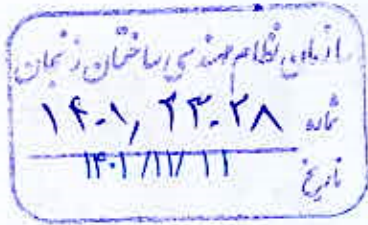 سازمان نظام مهندسی ساختمان زنجان
شماره ۱۴۰۱,۲۳۰۲۸
تاریخ ۱۴۰۱/۱۲/۱۱